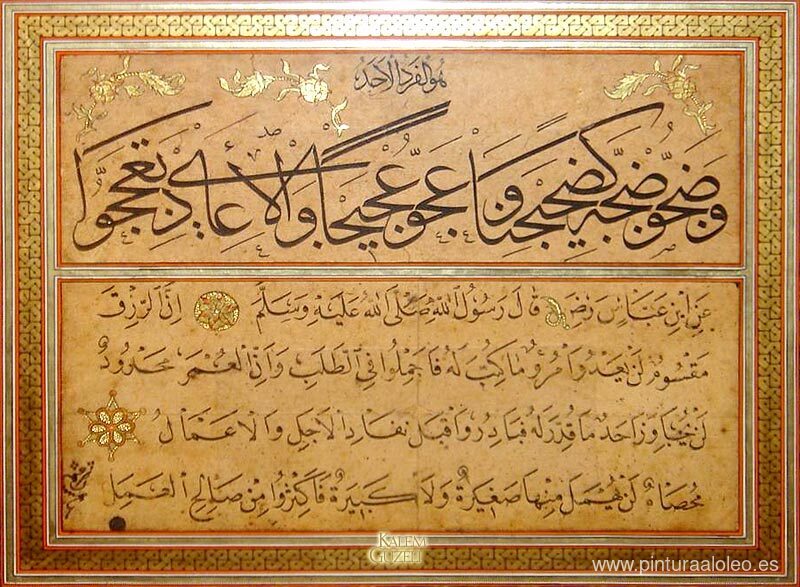 هو الفرد الاحد
عَنِ ابْنِ عَبَّاسٍ رَضِ قَالَ رَسُولُ اللهِ صَلَّى اللهُ عَلَيْهِ وَسَلَّمَ اِنَّ الرِّزْقَ
مَقْسُومٌ لَنْ يَعْدُوَ امْرُؤٌ مَا كُتِبَ لَهُ فَاَجْمِلُوا فِي الطَّلَبِ وَاِنَّ الْعُمَرَ مَحْدُودٌ
لَنْ يُجَاوِزَ اَحَدٌ مَا قُدِّرَ لَهُ فَبَادِرُوا قَبْلَ نَفَادِ الْاَجَلِ وَالْاَعْمَالُ
مُحْصَاةٌ لَنْ يُهْمَلَ مِنْهَا صَغِيرَةٌ وَلَا كَبِيرَةٌ فَاَكْثِرُوا مِنْ صَالِحِ الْعَمَلِ
KALEM
GÜZELİ
www.pinturaaloleo.es